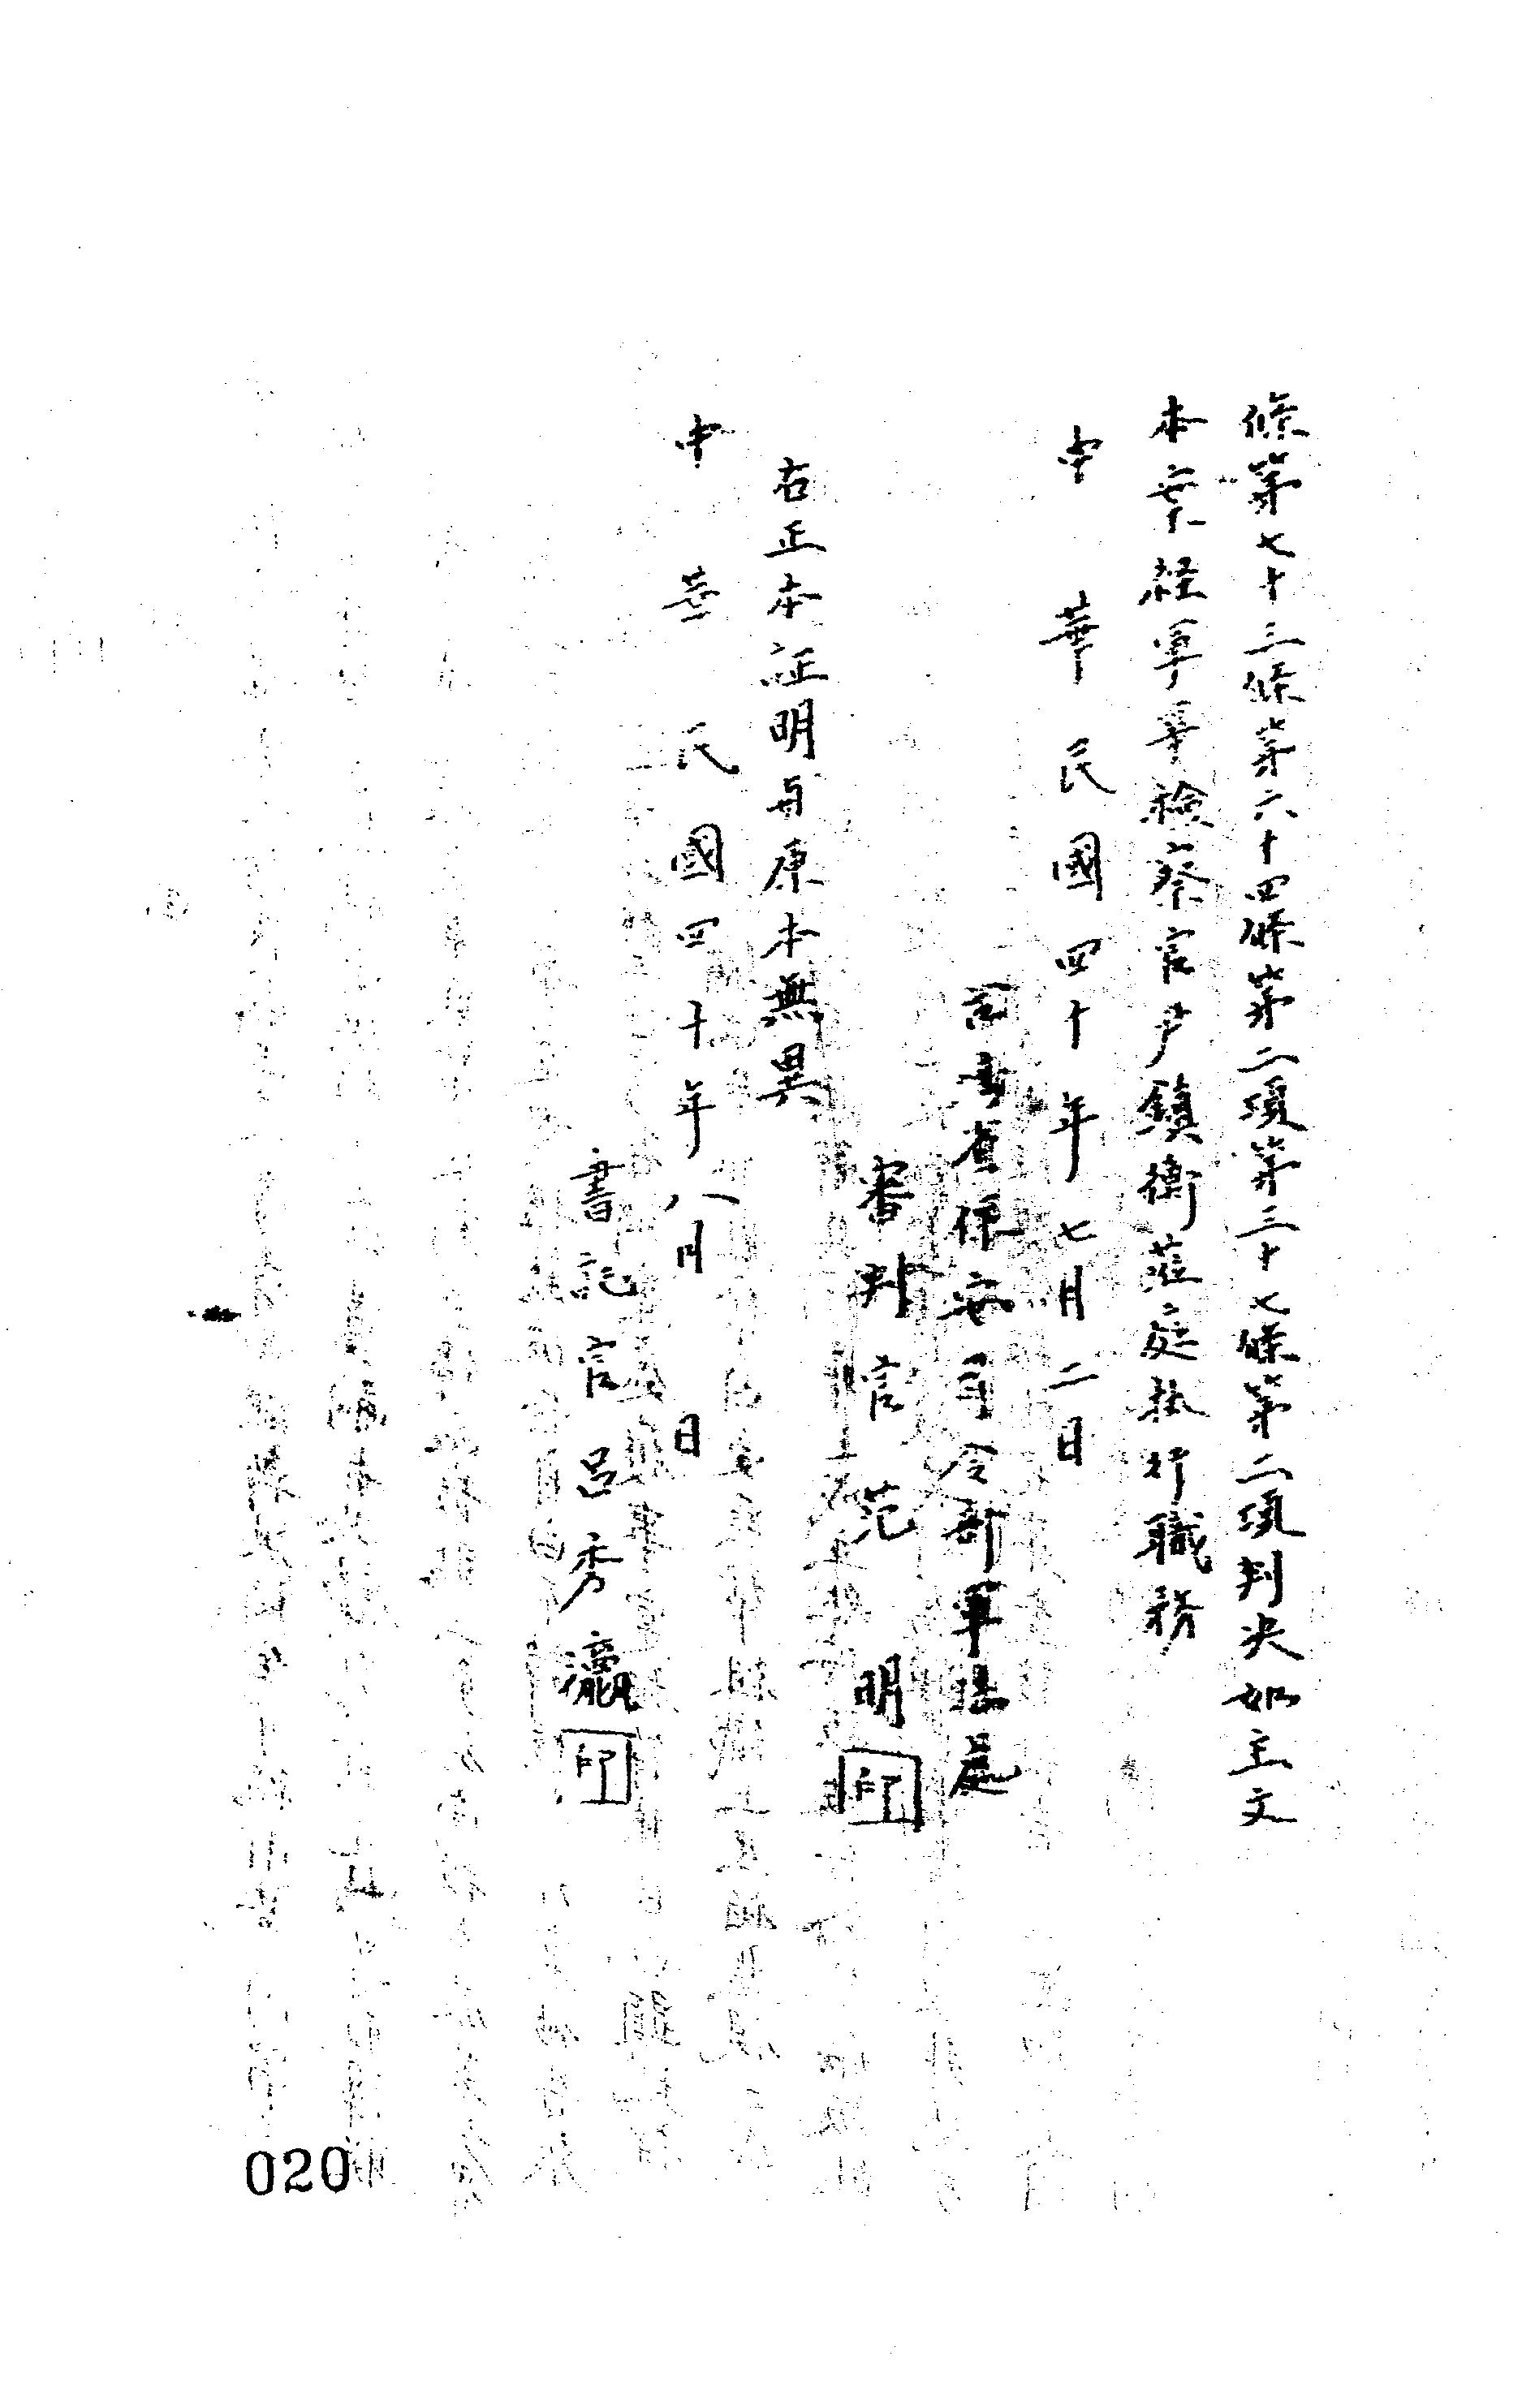 條第七十三條第六十四條第二項第三十七條第二項判决如主文
本案經軍事檢察官尹鎮衡蒞庭执行職務
中華民國四十年七月二日
台灣省保安司令部軍法處
審判官范明印
右正本证明与原本無異
中華民國四十年八月 日
書记官呂秀瀛印
020